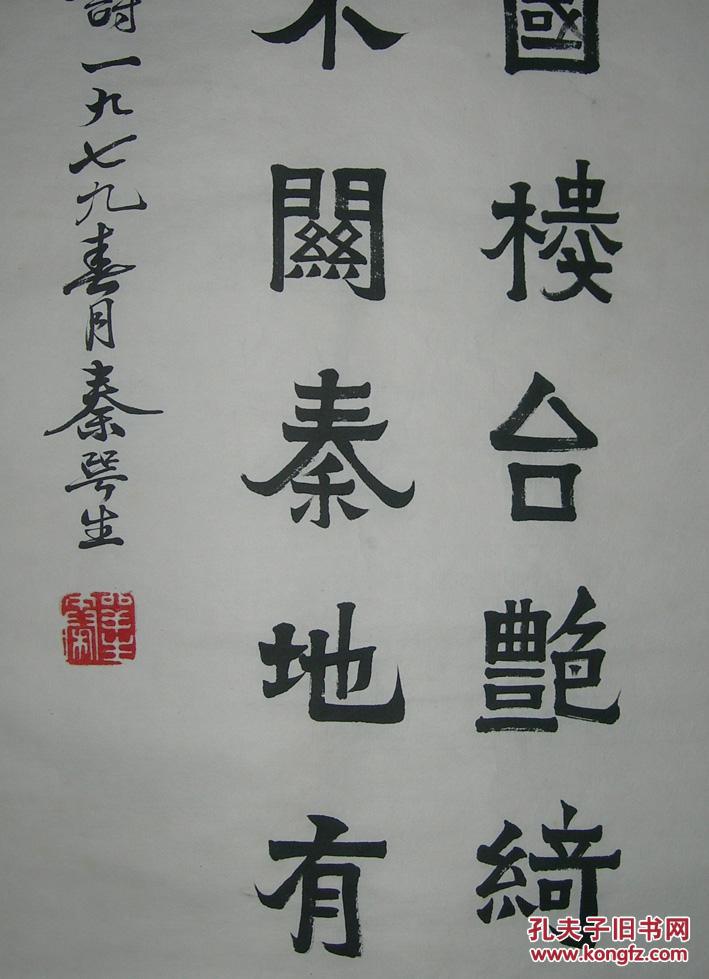 國樓台艶綺
不關秦地有
詩一九七九春月秦咢生
孔夫子旧书网
www.kongfz.com